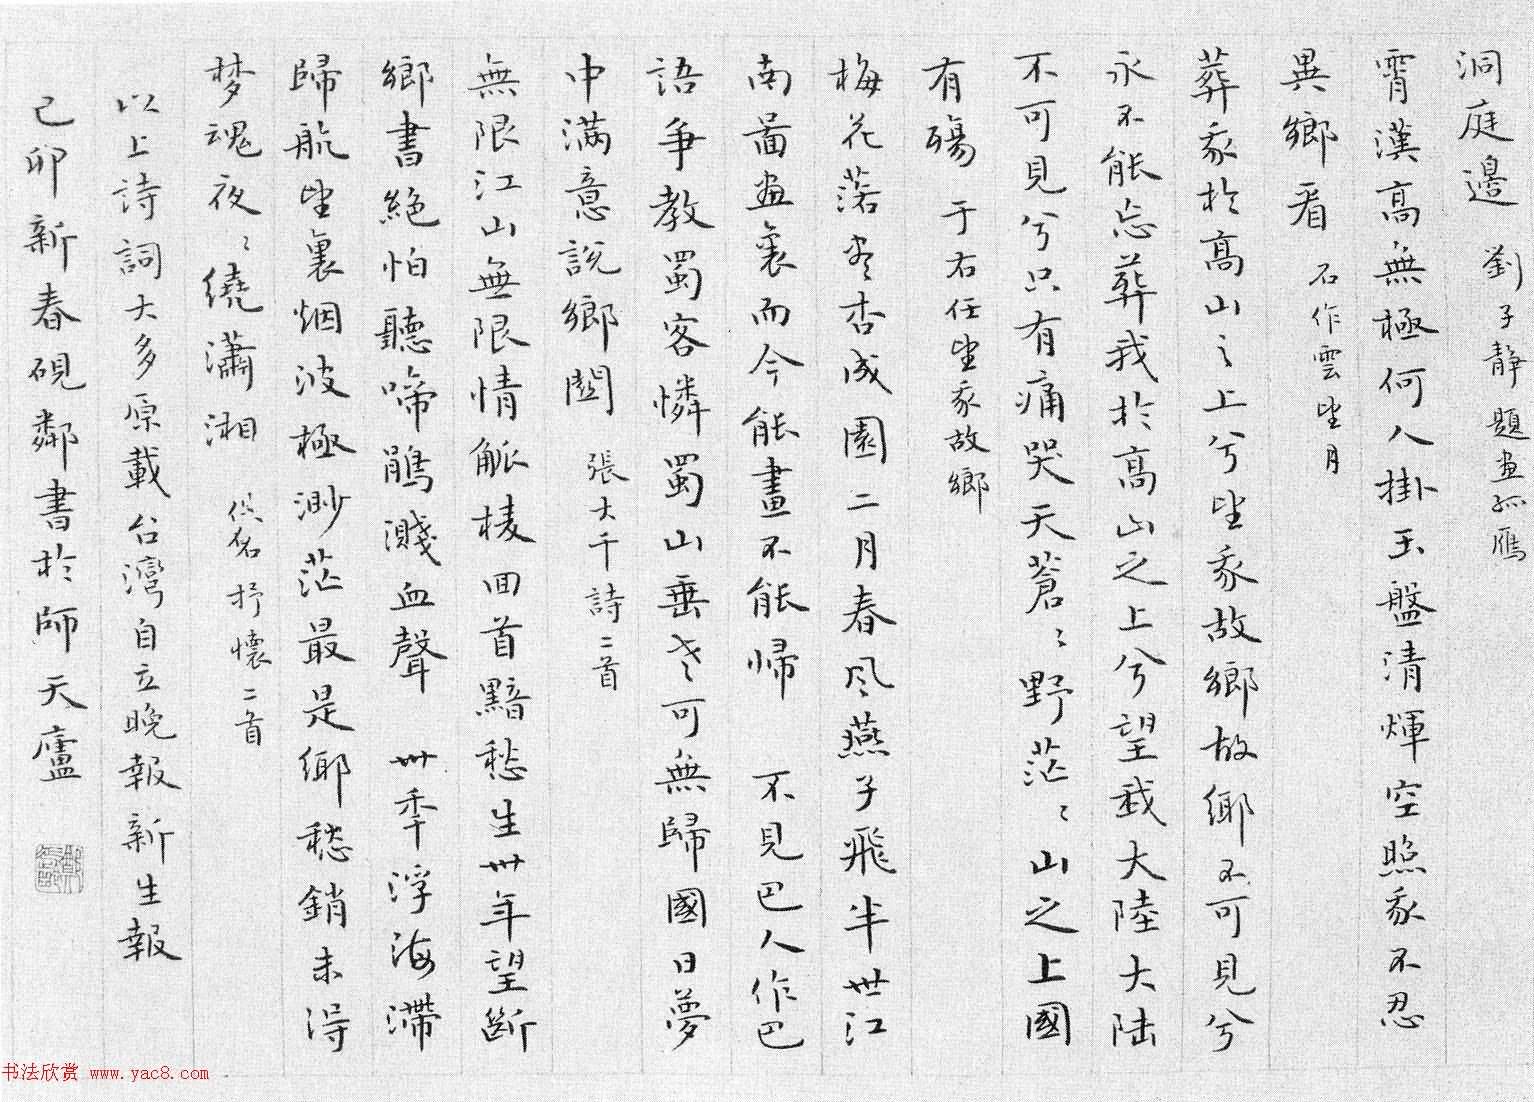 洞庭邊 劉子靜題畫孤雁
霄漢高無極何人掛玉盤清輝空照我不忍
異鄉看 石作雲望月
葬我於高山之上兮望我故鄉故鄉不可見兮
永不能忘葬我於高山之上兮望我大陸大陆
不可見兮只有痛哭天蒼〻野茫〻山之上國
有殤 于右任望我故鄉
梅花落盡杏成園二月春风燕子飛半世江
南畫裏而今能畫不能歸 不見巴人作巴
語争教蜀客憐蜀山垂老可無歸國日夢
中滿意說鄉關 張大千詩二首
無限江山無限情觚棱回首黯愁生卅年望斷
鄉書絕怕聽啼鵑濺血聲 卅年浮海滯
歸航望裏烟波極渺茫最是鄉愁銷未得
梦魂夜〻繞瀟湘 佚名抒懷二首
以上詩詞大多原載台灣自立晚報新生報
己卯新春硯鄰書於師天廬
书法欣赏 www.yac8.com